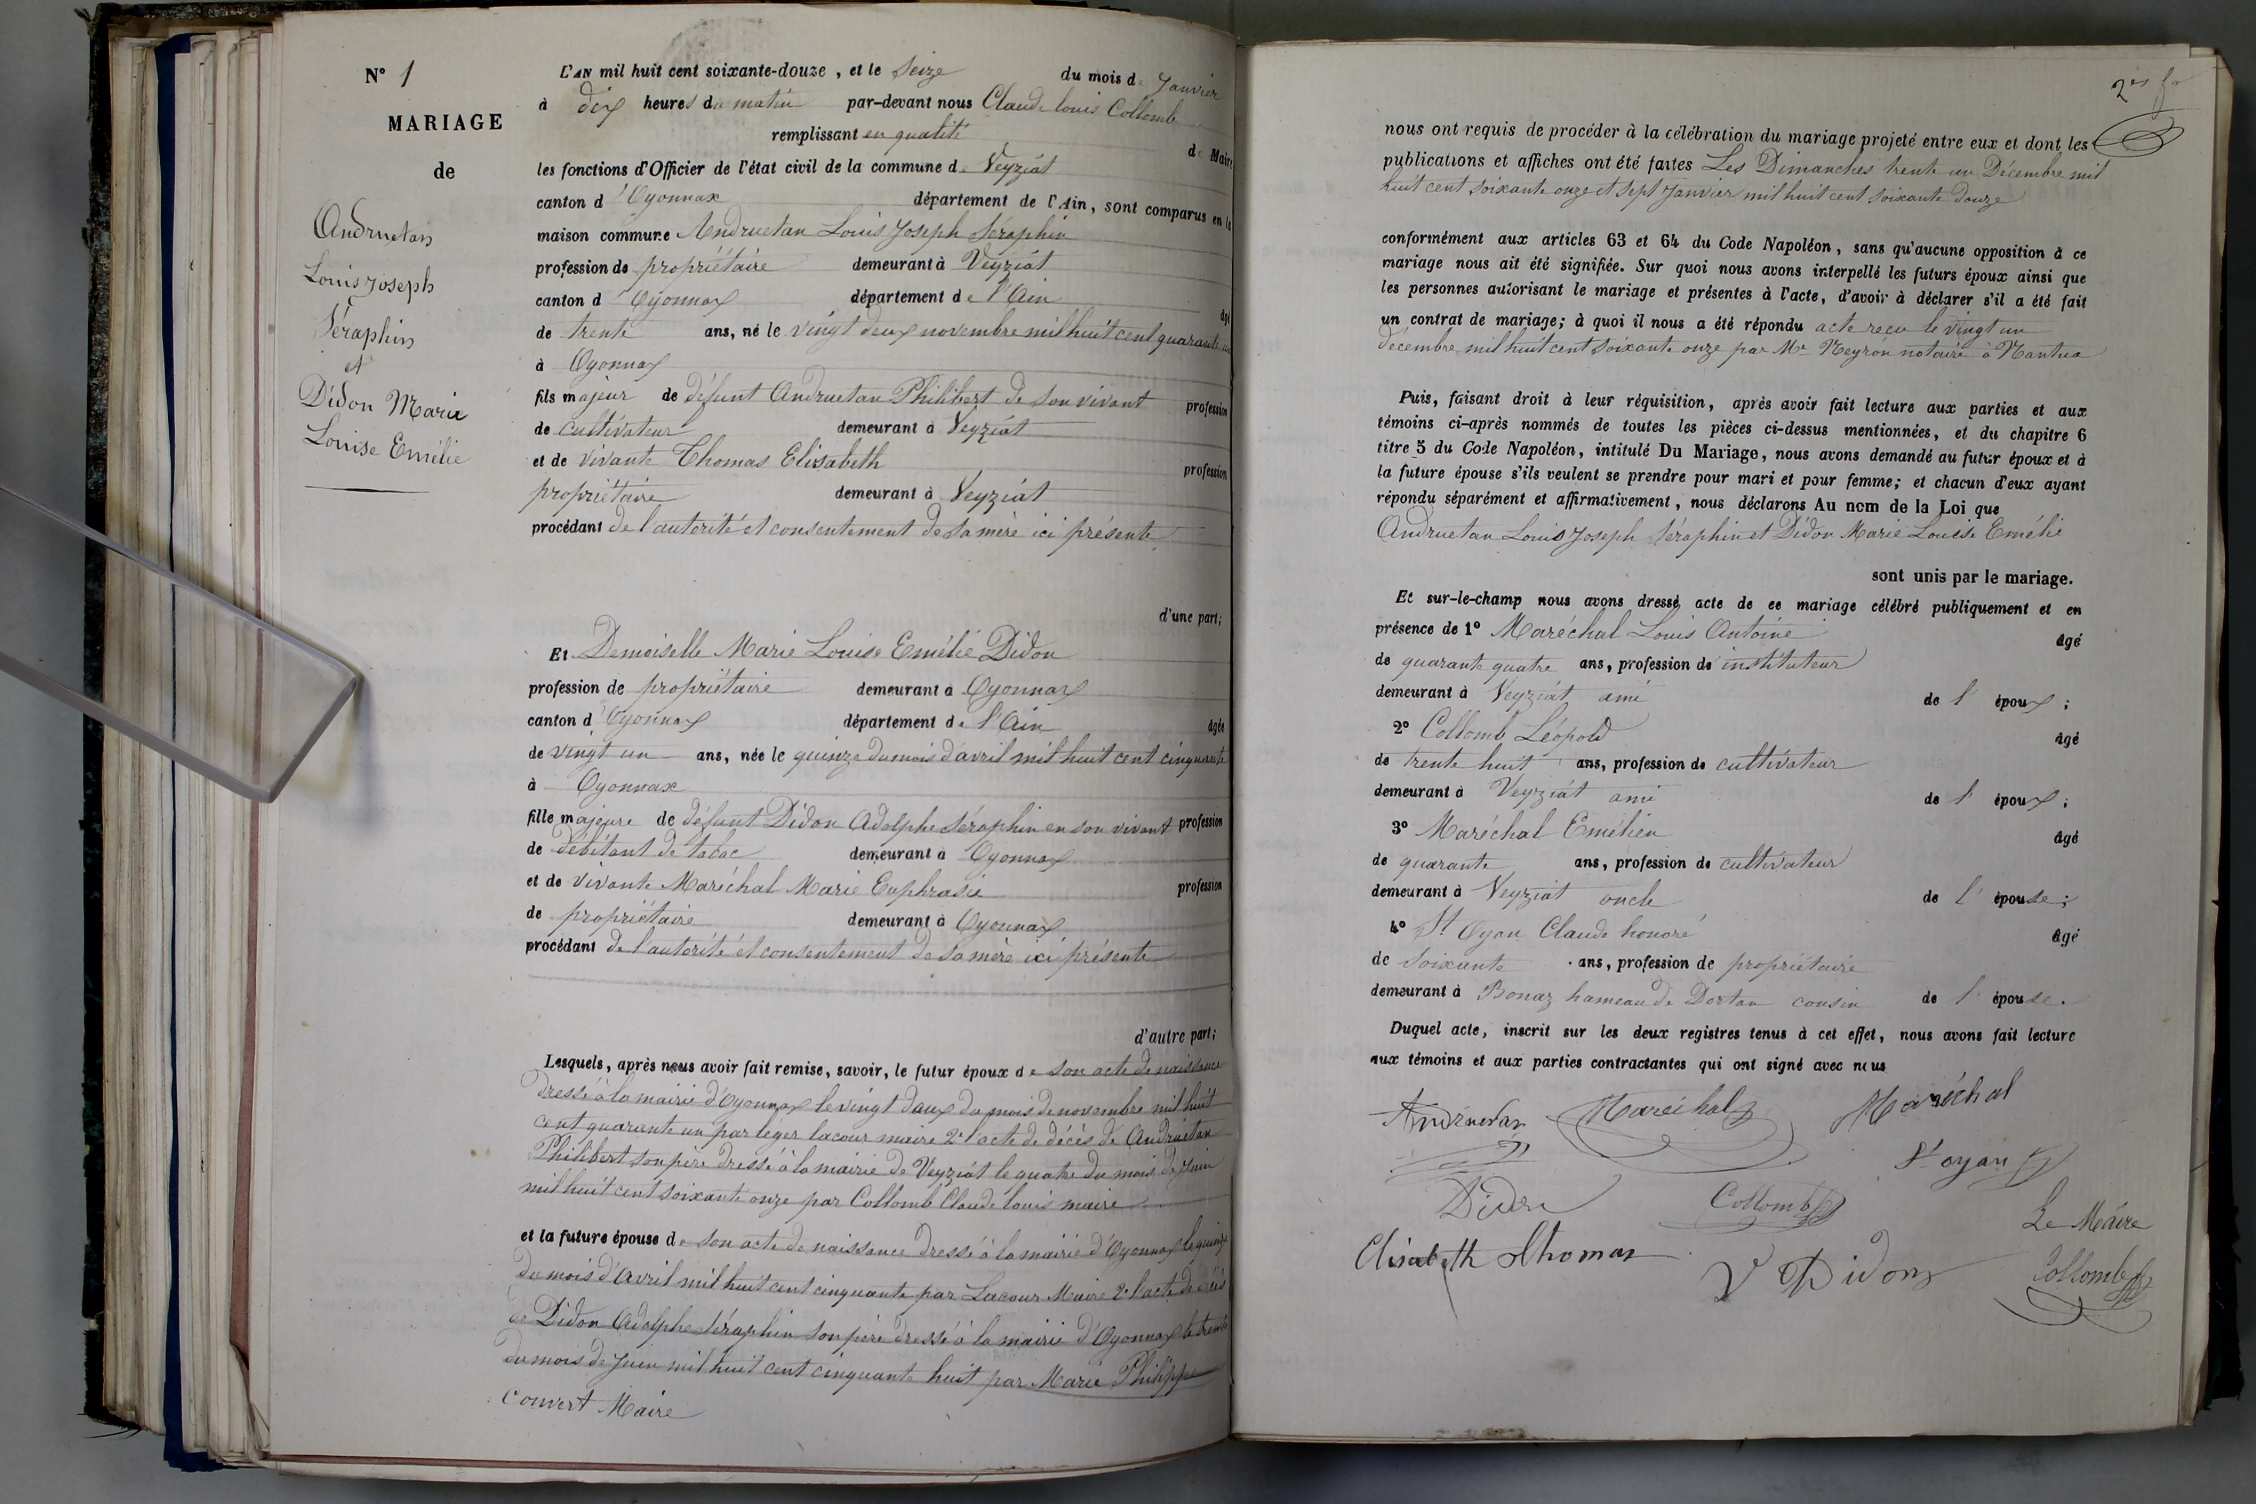 N° 1
MARIAGE
de
Andruetan
Louis Joseph
Séraphin
et
Didon Marie
Louise Emélie
L'AN mil huit cent soixante-douze, et le Seize du mois de Janvier
à dix heures du matin par-devant nous Claude Louis Collomb
remplissant en qualité de Maire
les fonctions d'Officier de l'état civil de la commune de Veyziat
canton d'Oyonnax département de l'Ain, sont comparus en la
maison commune Andruetan Louis Joseph Séraphin
profession de propriétaire demeurant à Veyziat
canton d Oyonnax département de l'Ain âgé
de trente ans, né le vingt deux novembre mil huit cent quarante un
à Oyonnax
fils majeur de défunt Andruetan Philibert de son vivant profession
de cultivateur demeurant à Veyziat
et de vivante Thomas Elisabeth profession
propriétaire demeurant à Veyziat
procédant de l'autorité et consentement de sa mère ici présente
d'une part;
Et Demoiselle Marie Louise Emélie Didon
profession de propriétaire demeurant à Oyonnax
canton d'Oyonnax département de l'Ain âgée
de vingt un ans, née le quinze du mois d'avril mil huit cent cinquante
à Oyonnax
fille majeure de défunt Didon Adolphe Séraphin en son vivant profession
de débitant de tabac demeurant à Oyonnax
et de vivante Maréchal Marie Euphrasie profession
de propriétaire demeurant à Oyonnax
procédant de l'autorité et consentement de sa mère ici présente
d'autre part;
Lesquels, après nous avoir fait remise, savoir, le futur époux de son acte de naissance
dressé à la mairie d'Oyonnax le vingt deux du mois de novembre mil huit
cent quarante un par léger lacour maire 2° l'acte de décès de Andruétan
Philibert son père dressé à la mairie de Veyziat le quatre du mois de Juin
mil huit cent soixante onze par Collomb Claude Louis maire
et la future épouse de son acte de naissance dressé à la mairie d'Oyonnax le quinze
du mois d'Avril mil huit cent cinquante par Lacour Maire 2° l'acte de décès
de Didon Adolphe Séraphin son père dressé à la mairie d'Oyonnax le trente
du mois de Juin mil huit cent cinquante huit par Marie Philippe
Convert Maire
nous ont requis de procéder à la célébration du mariage projeté entre eux et dont les
publications et affiches ont été faites Les Dimanches trente un Décembre mil
huit cent soixante onze et sept Janvier mil huit cent soixante douze
conformément aux articles 63 et 64 du Code Napoléon, sans qu'aucune opposition à ce
mariage nous ait été signifiée. Sur quoi nous avons interpellé les futurs époux ainsi que
les personnes autorisant le mariage et présentes à l'acte, d'avoir à déclarer s'il a été fait
un contrat de mariage; à quoi il nous a été répondu acte reçu le vingt un
décembre mil huit cent soixante onze par Me Meyron notaire à Nantua
Puis, faisant droit à leur réquisition, après avoir fait lecture aux parties et aux
témoins ci-après nommés de toutes les pièces ci-dessus mentionnées, et du chapitre 6
titre 5 du Code Napoléon, intitulé Du Mariage, nous avons demandé au futur époux et à
la future épouse s'ils veulent se prendre pour mari et pour femme; et chacun d'eux ayant
répondu séparément et affirmativement, nous déclarons Au nom de la Loi que
Andruetan Louis Joseph Séraphin et Didon Marie Louise Emélie
sont unis par le mariage.
Et sur-le-champ nous avons dressé acte de ce mariage célébré publiquement et en
présence de 1° Maréchal Louis Antoine âgé
de quarante quatre ans, profession de instituteur
demeurant à Veyziat ami de l' époux;
2° Collomb Léopold âgé
de trente huit ans, profession de cultivateur
demeurant à Veyziat ami de l' époux;
3° Maréchal Emélien âgé
de quarante ans, profession de cultivateur
demeurant à Veyziat oncle de l' épouse;
4° St Oyan Claude honoré âgé
de soixante ans, profession de propriétaire
demeurant à Bonaz hameau de Dortan cousin de l' épouse.
Duquel acte, inscrit sur les deux registres tenus à cet effet, nous avons fait lecture
aux témoins et aux parties contractantes qui ont signé avec nous
Andruetan Maréchal Maréchal
St oyan
Didon Collomb Le Maire
Elisabeth Thomas V Didon Collomb